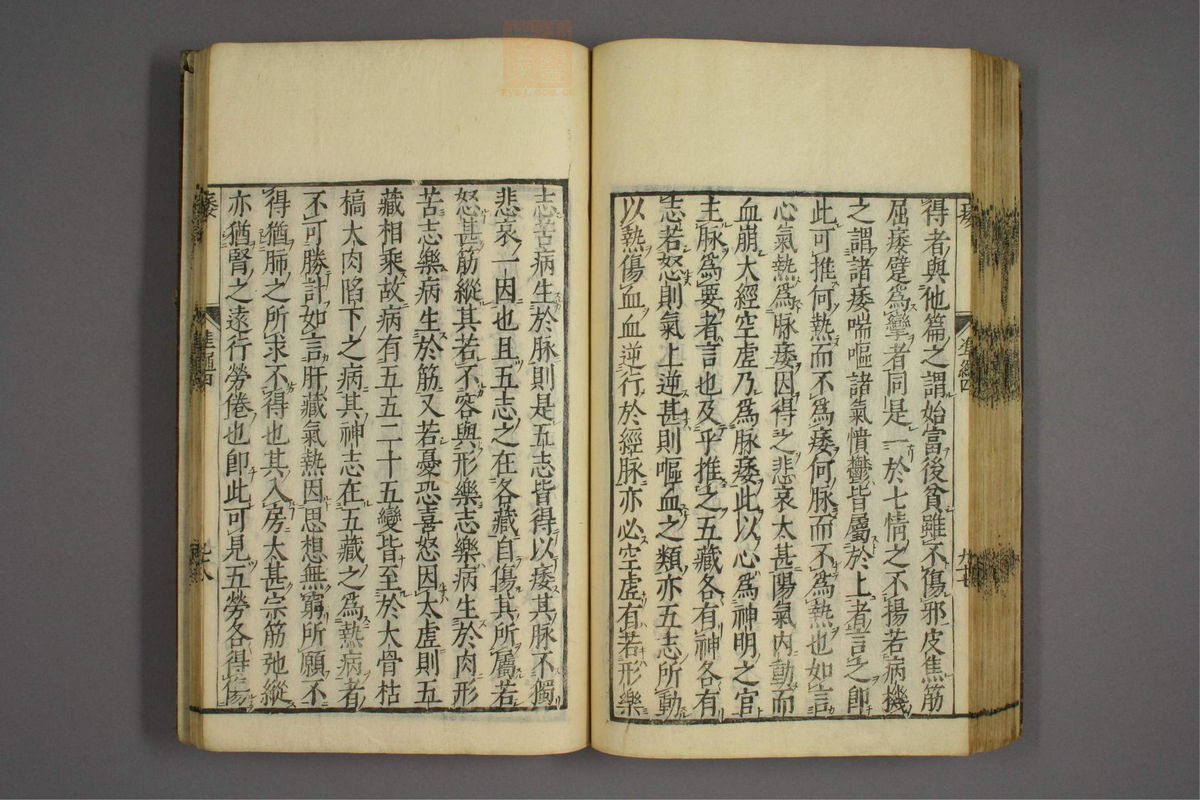 得者與他篇之謂始富後貧雖不傷邪皮焦筋
屈痿躄爲攣者同是一於七情之不揚若病機
之謂諸痿喘嘔諸氣憤鬱皆屬於上者言之卽
此可推何熱而不爲痿何脉而不爲熱也如言
心氣熱爲脉痿因得之悲哀太甚陽氣内動而
血崩大經空虛乃爲脉痿此以心爲神明之官
主脉爲要者言也及乎推之五藏各有神各有
志若怒則氣上逆甚則嘔血之類亦五志所動
以熱傷血血逆行於經脉亦必空虛有若形樂
志苦病生於脉則是五志皆得以痿其脉不獨
悲哀一因也且五志之在各藏自傷其所屬若
怒甚筋縱其若不容與形樂志樂病生於肉形
苦志樂病生於筋又若憂恐喜怒因太虛則五
藏相乘故病有五五二十五變皆至於大骨枯
槁大肉陷下之病其神志在五藏之爲熱病者
不可勝計如言肝藏氣熱因思想無窮所願不
得猶肺之所求不得也其入房太甚宗筋弛縱
亦猶腎之遠行勞倦也卽此可見五勞各得傷
痿